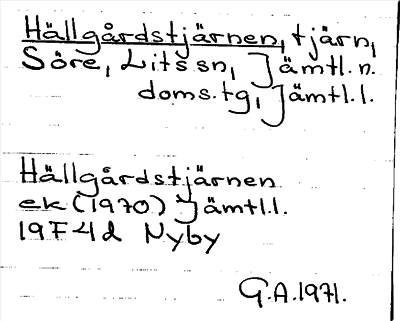 Hällgårdstjärnen, tjärn,
Söre, Lits sn, Jämtl. n.
doms.tg, Jämtl. l.
Hällgårdstjärnen
ek (1970) Jämtl.l.
19F4d Nyby
G.A.1971.